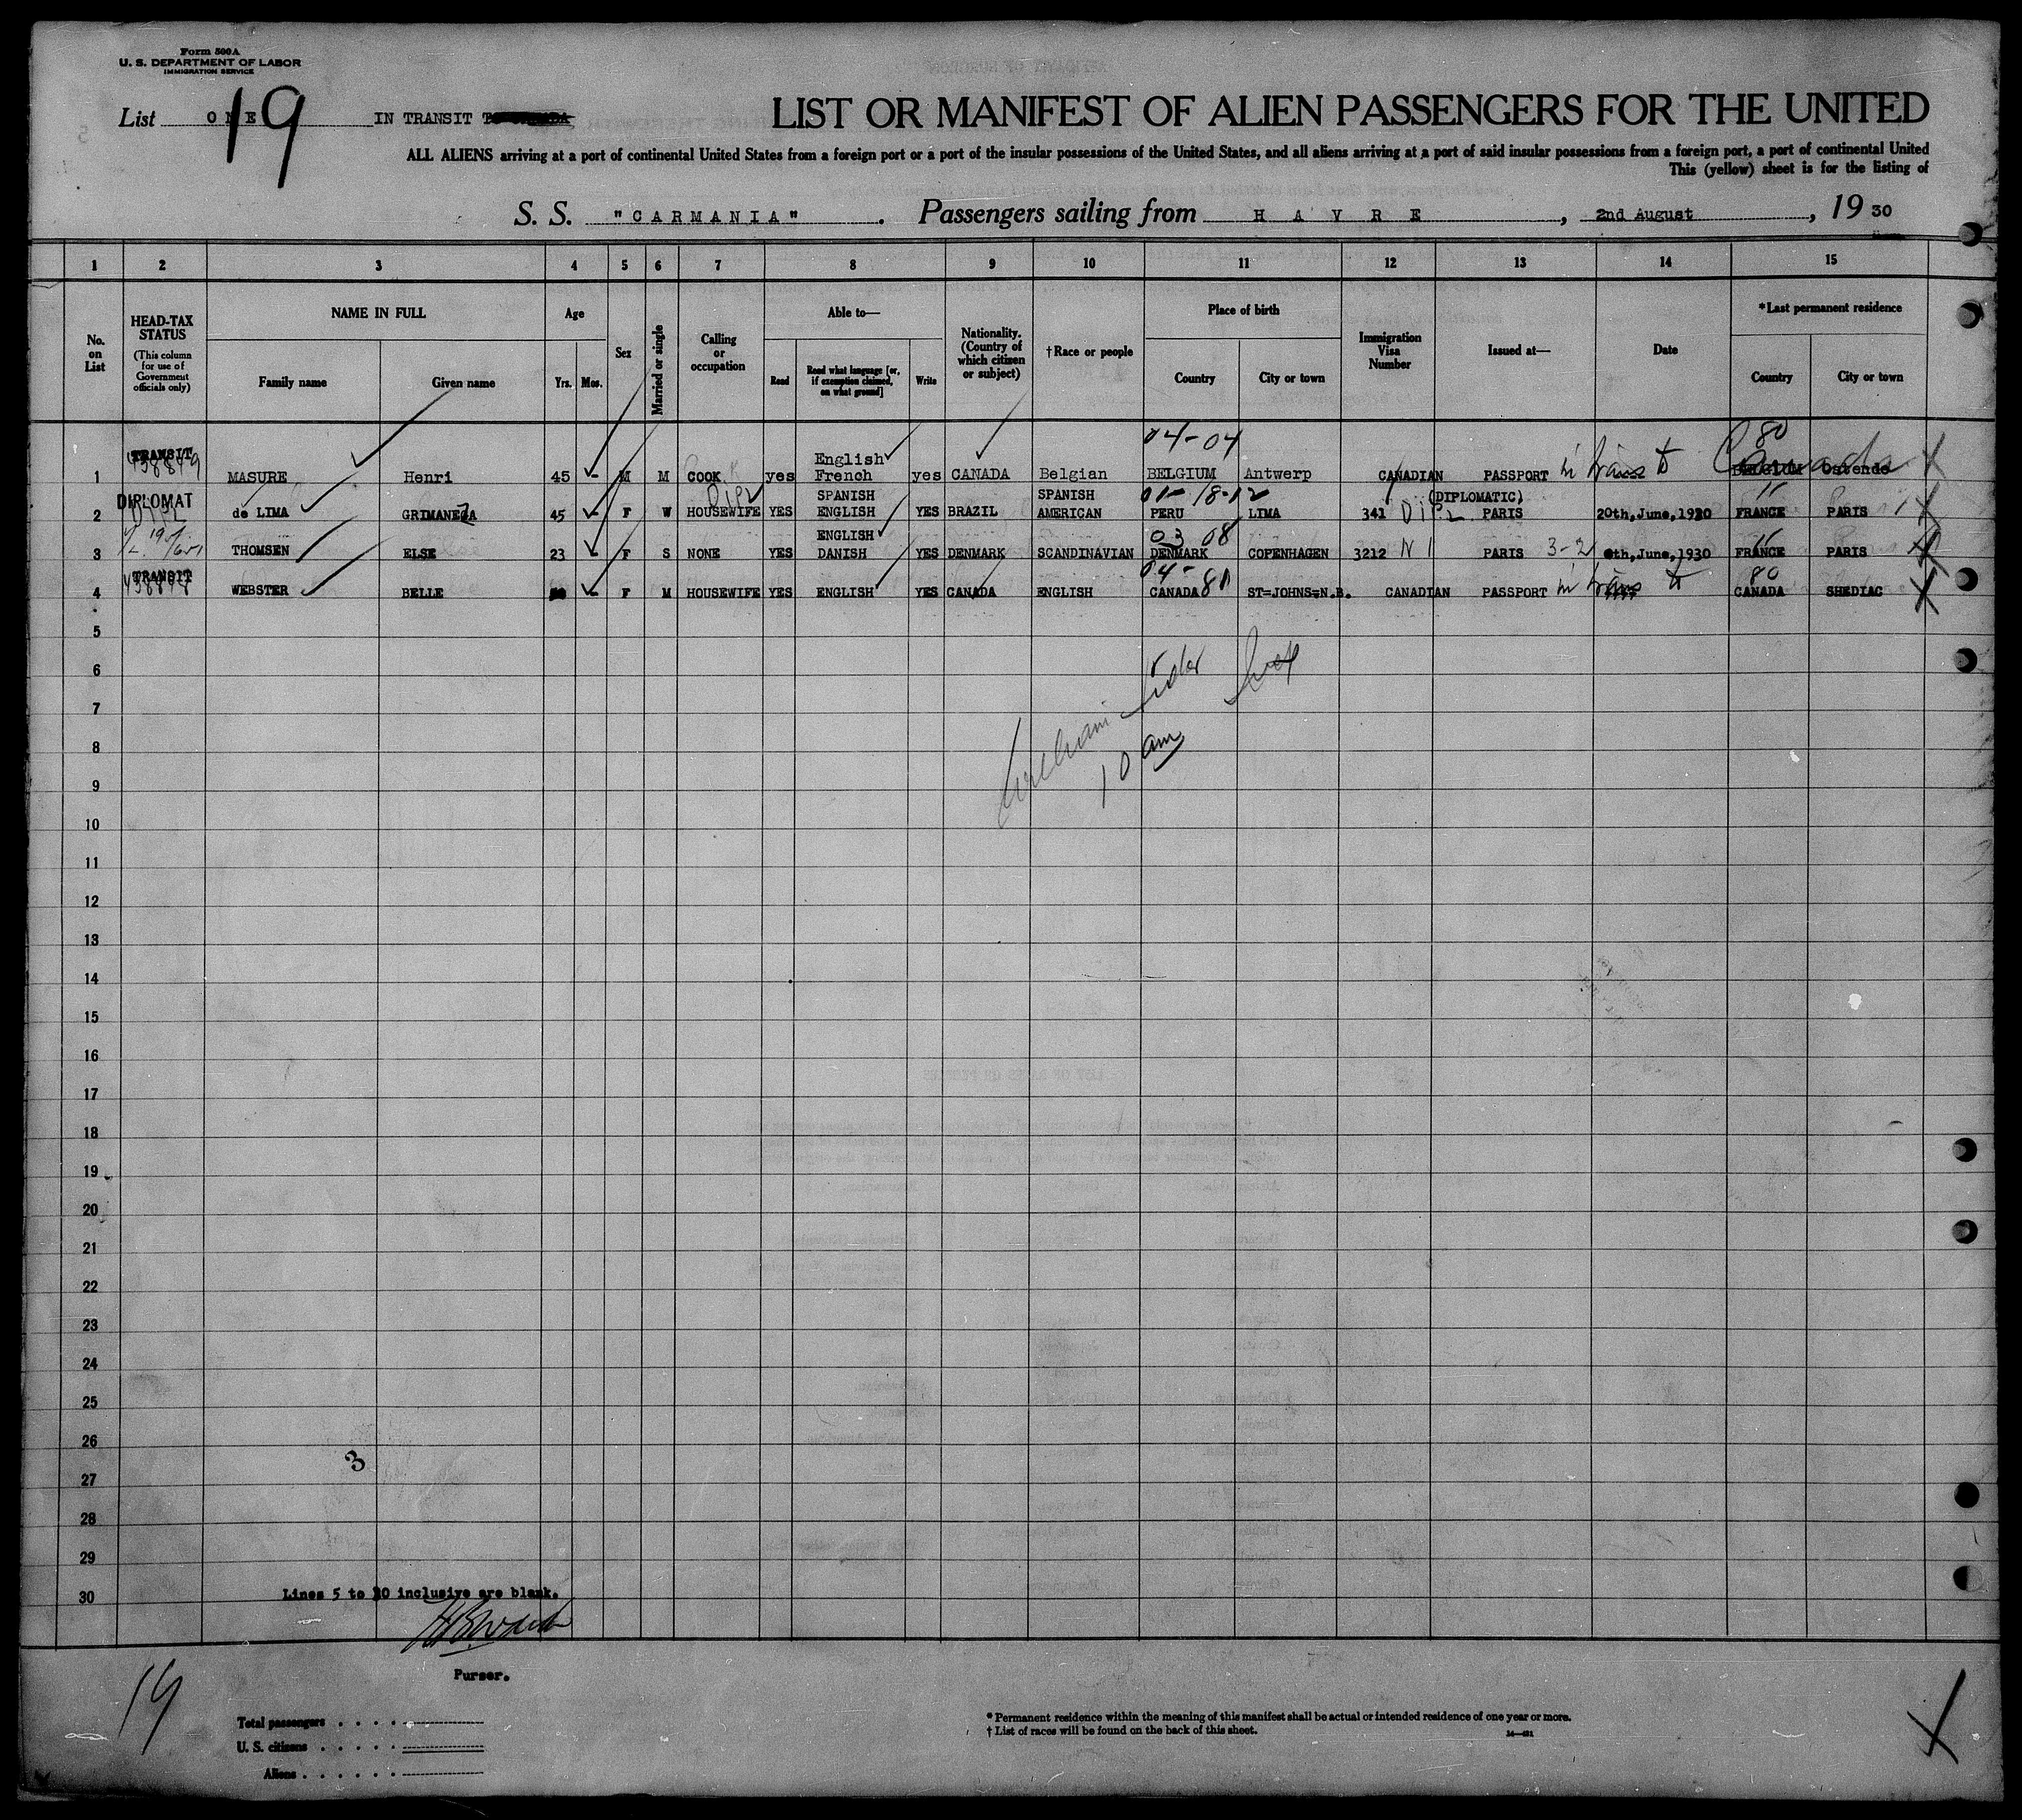 Form 500A
U. S. DEPARTMENT OF LABOR
IMMIGRATION SERVICE
List ONE 19 IN TRANSIT
LIST OR MANIFEST OF ALIEN PASSENGERS FOR THE UNITED
ALL ALIENS arriving at a port of continental United States from a foreign port or a port of the insular possessions of the United States, and all aliens arriving at a port of said insular possessions from a foreign port, a port of continental United
This (yellow) sheet is for the listing of
S. S. "CARMANIA". Passengers sailing from HAVRE, 2nd August, 19 30
1 2 3 4 5 6 7 8 9 10 11 12 13 14 15
No. on List
HEAD-TAX STATUS (This column for use of Government officials only)
NAME IN FULL
Family name
Given name
Age
Yrs. Mos.
Sex
Married or single
Calling or occupation
Able to—
Read
Read what language [or, if exemption claimed, on what ground]
Write
Nationality. (Country of which citizen or subject)
†Race or people
Place of birth
Country
City or town
Immigration Visa Number
Issued at—
Date
*Last permanent residence
Country
City or town
04-04 80
TRANSIT English
1 MASURE Henri 45 - M M COOK yes French yes CANADA Belgian BELGIUM Antwerp CANADIAN PASSPORT in trans to Canada BELGIUM Ostende X
DIPLOMAT DIPL SPANISH SPANISH 01-18-12 (DIPLOMATIC) 11
2 de LIMA GRIMANEZA 45 - F W HOUSEWIFE YES ENGLISH YES BRAZIL AMERICAN PERU LIMA 341 DIPL PARIS 20th,June,1930 FRANCE PARIS X
ENGLISH 03 08 11
3 THOMSEN ELSE 23 - F S NONE YES DANISH YES DENMARK SCANDINAVIAN DENMARK COPENHAGEN 3212 PARIS 3-2 th,June,1930 FRANCE PARIS X
TRANSIT 04- 80
4 WEBSTER BELLE - F M HOUSEWIFE YES ENGLISH YES CANADA ENGLISH CANADA ST=JOHNS=N.B. CANADIAN PASSPORT in trans to CANADA SHEDIAC X
5
6
7
8
9
10 am
10
11
12
13
14
15
16
17
18
19
20
21
22
23
24
25
26
3
27
28
29
30 Lines 5 to 30 inclusive are blank.
Purser.
19
Total passengers
U. S. citizens
Aliens
* Permanent residence within the meaning of this manifest shall be actual or intended residence of one year or more.
† List of races will be found on the back of this sheet.
X